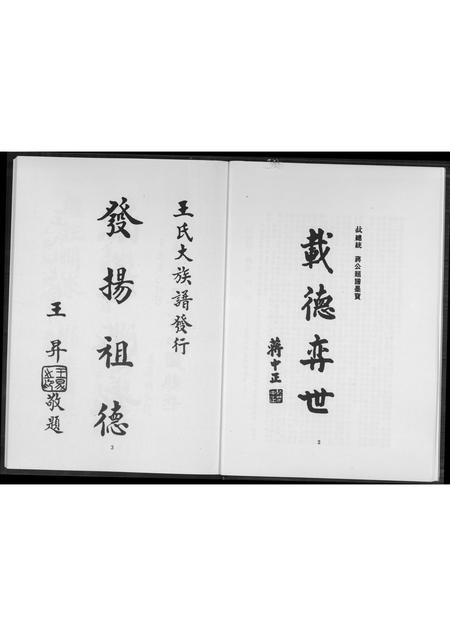 故總統 蔣公題譜墨寶
載德弈世
蔣中正
2
王氏大族譜發行
發揚祖德
王昇
敬題
3